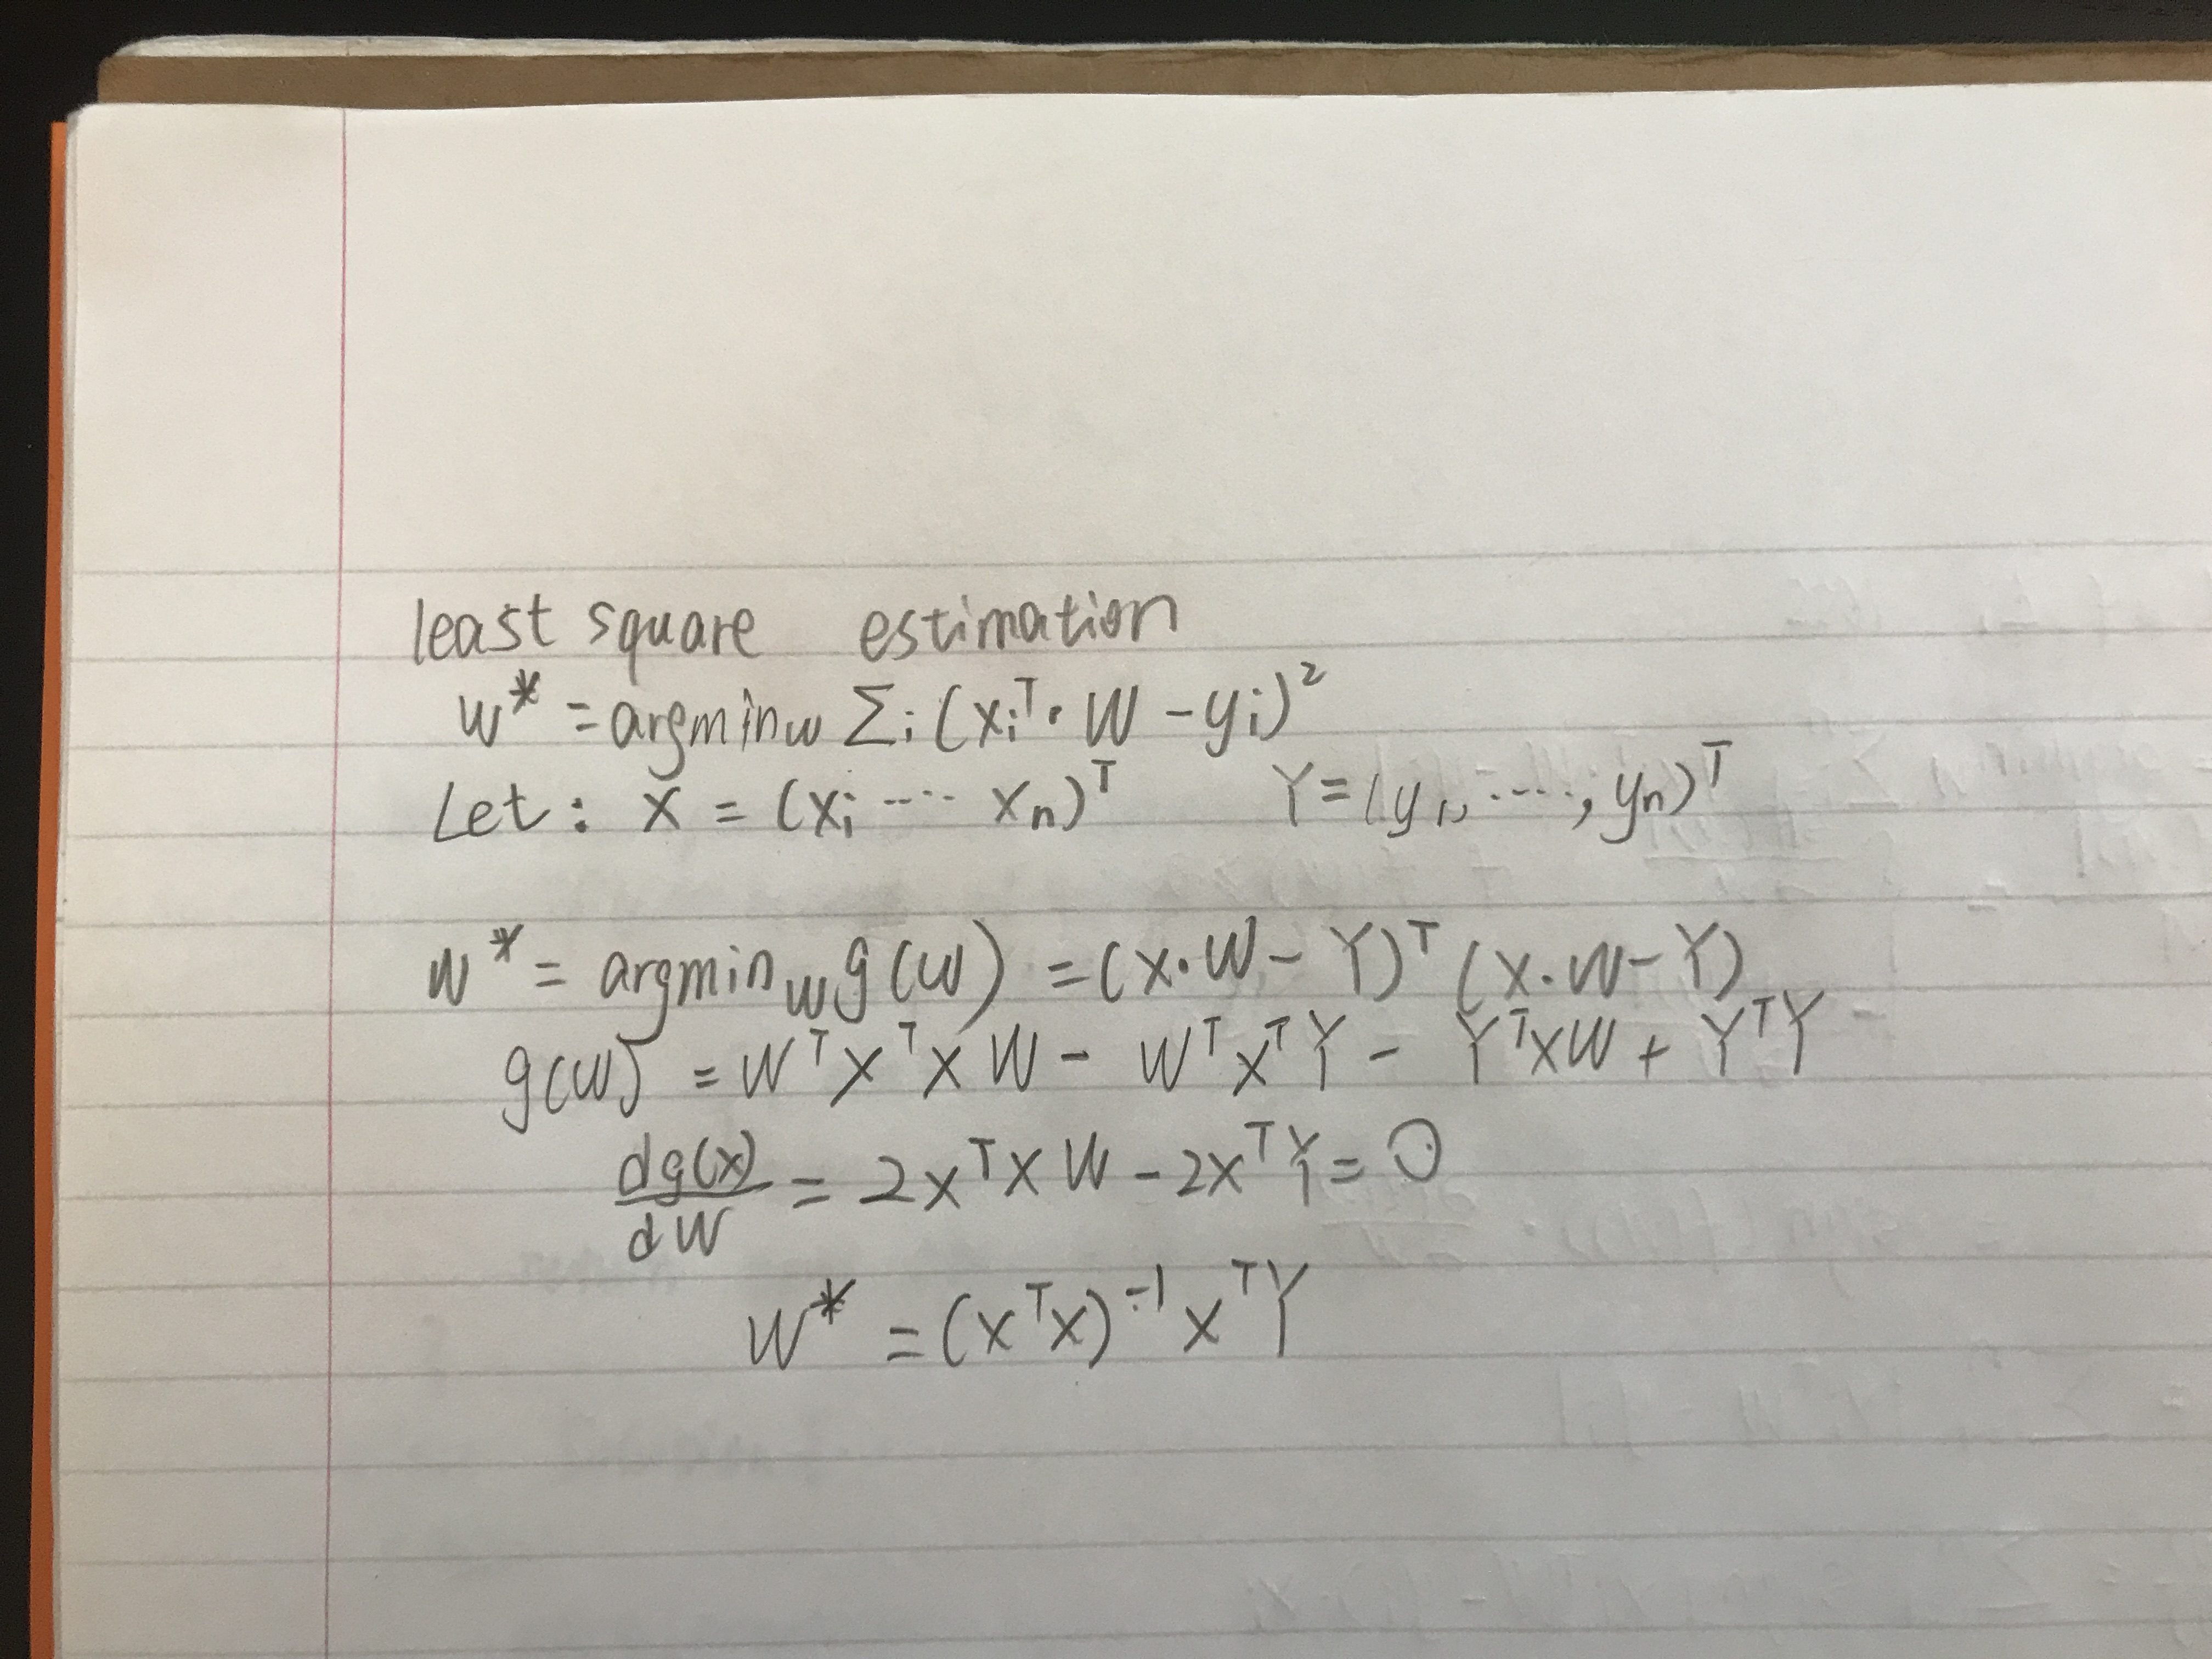 least square estimation
w* = argmin_w Σ_i (x_i^T · W - y_i)²
Let: X = (x_i ... x_n)^T Y = (y_1, ..., y_n)^T
W* = argmin_w g(w) = (X·W - Y)^T (X·W - Y)
g(w) = W^T X^T X W - W^T X^T Y - Y^T X W + Y^T Y
dg(x)/dW = 2X^T X W - 2X^T Y = 0
W* = (X^T X)^-1 X^T Y